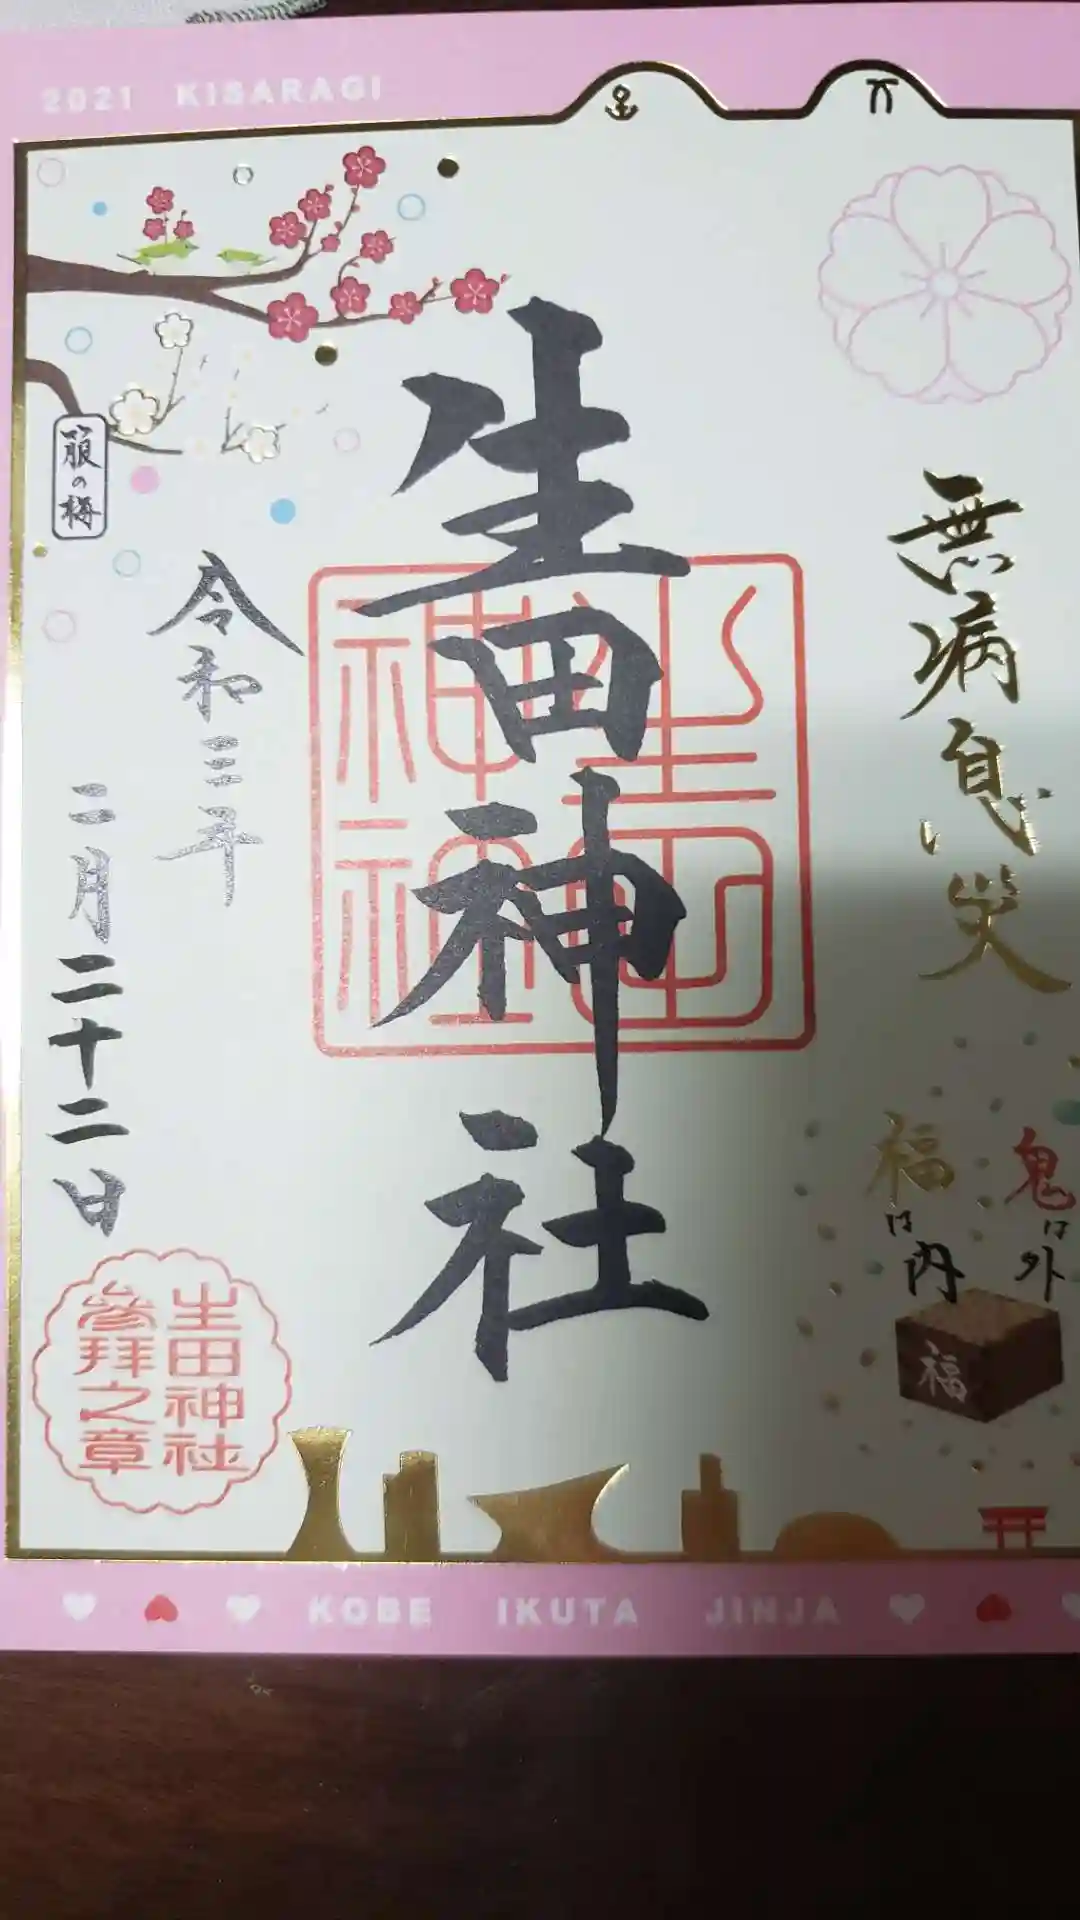 2021 KISARAGI
無病息災
鬼は外
福は内
福
生田神社
生田神社
令和三年
二月二十二日
箙の梅
生田神社
參拜之章
KOBE IKUTA JINJA